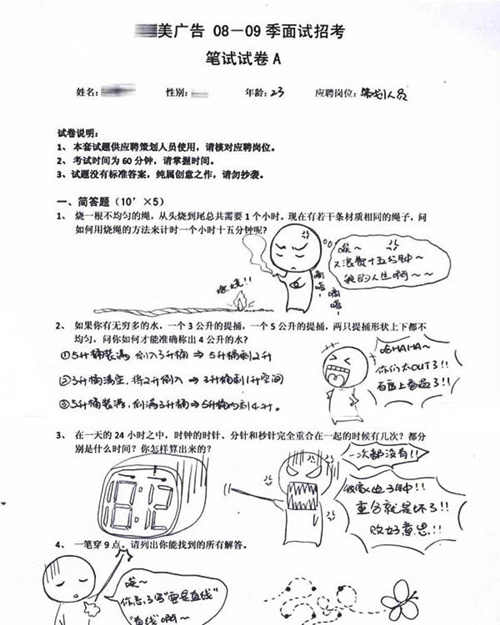 美广告 08－09 季面试招考
笔试试卷 A
姓名： 性别： 年龄：23 应聘岗位：策划人员
试卷说明：
1、本套试题供应聘策划人员使用，请核对应聘岗位。
2、考试时间为 60 分钟，请掌握时间。
3、试题没有标准答案，纯属创意之作，请勿抄袭。
一、简答题（10’×5）
1、烧一根不均匀的绳，从头烧到尾总共需要 1 个小时。现在有若干条材质相同的绳子，问
如何用烧绳的方法来计时一个小时十五分钟呢？
唉~
又浪费十五分钟~
我的人生啊~~
2、如果你有无穷多的水，一个 3 公升的提捅，一个 5 公升的提捅，两只提捅形状上下都不
均匀，问你如何才能准确称出 4 公升的水？
①5升桶装满，倒入3升桶 ⇒ 5升桶剩2升
②3升桶清空，将2升倒入 ⇒ 3升桶剩1升空间
③5升桶装满，倒满3升桶 ⇒ 5升桶内剩4升。
哈HAHA~
你们太OUT了!!
3、在一天的 24 小时之中，时钟的时针、分针和秒针完全重合在一起的时候有几次？都分
别是什么时间？你怎样算出来的？
一次都没有!!
重合就是坏了!!
败好意思!!
18:12
4、一笔穿 9 点。请列出你能找到的所有解答。
唉~
"直线"啊~